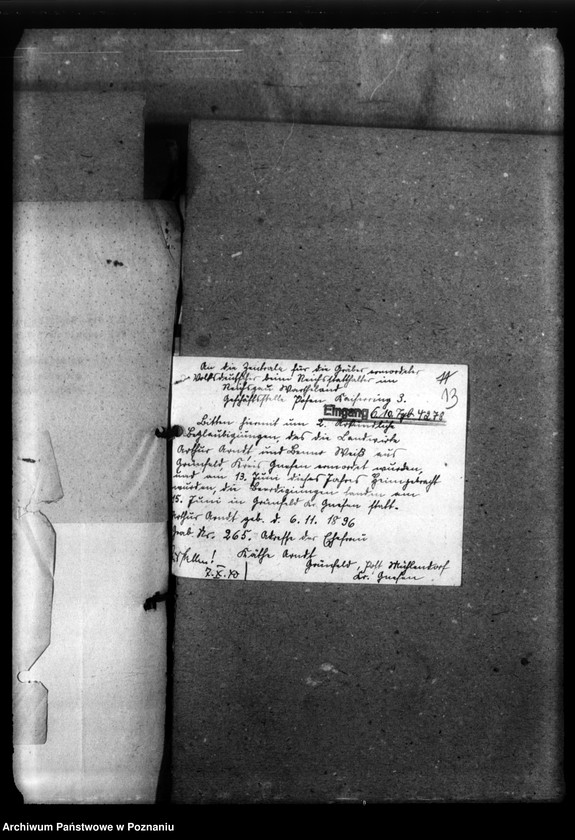 An die Zentrale für die Gräber ermordeter
Volksdeutscher beim Reichsstatthalter im
Reichsgau Wartheland
Geschäftsstelle Posen Kaiserring 3.
13
Eingang 6.10. Tgb. 4272
Bitten hiermit um 2.
Beglaubigungen, das die Landwirte
Arthur Arndt, und Benno Weiß aus
Grünfeld, Kreis Gnesen ermordet wurden,
und am 13. Juni dieses Jahres heimgebracht
wurden, die Beerdigungen fanden am
15. Juni in Grünfeld Kr. Gnesen statt.
Arthur Arndt geb. d. 6.11. 1896
Grab Nr. 265. Adresse der Ehefrau
Käthe Arndt
Grünfeld, Post Mühlendorf
Kr. Gnesen
Archiwum Państwowe w Poznaniu